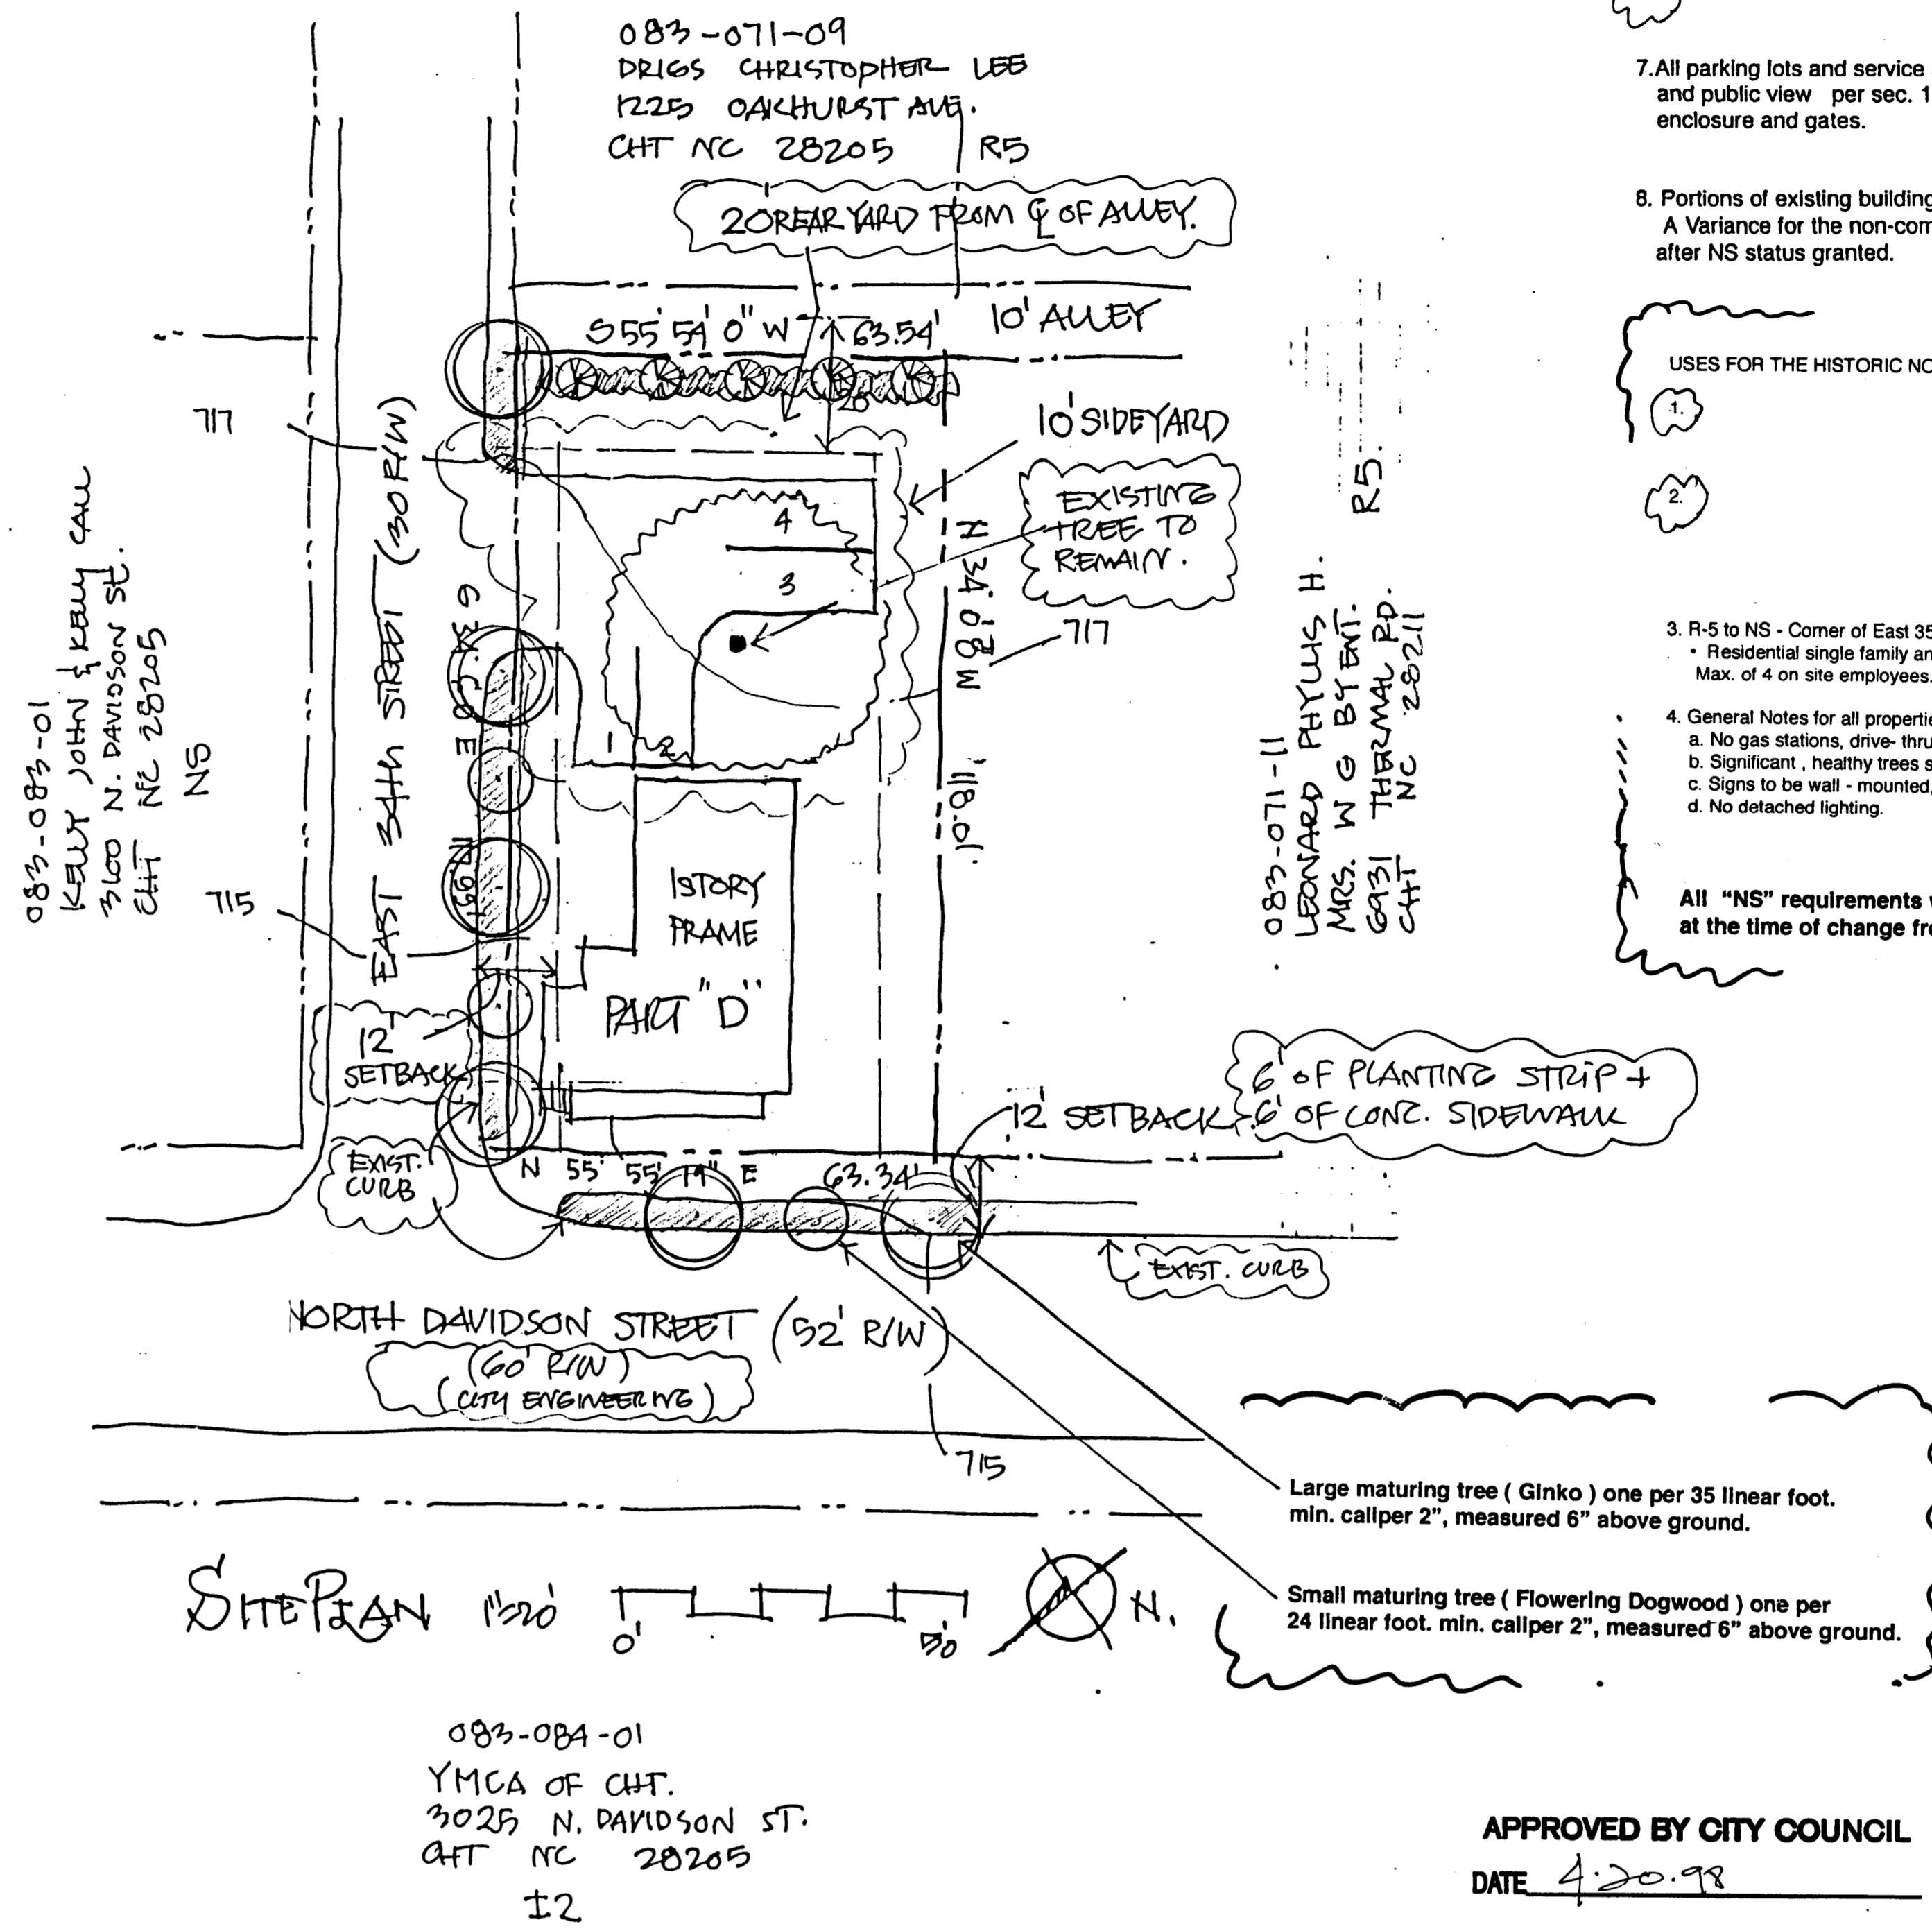 083-071-09
DRIGS CHRISTOPHER LEE
1225 OAKHURST AVE.
CHT NC 28205 R5
20 REAR YARD FROM ℄ OF ALLEY.
10' ALLEY
S 55° 54' 0" W 63.54'
20
717
10' SIDEYARD
EXISTING
TREE TO
REMAIN.
4
3
2
1
717
N 34° 0' 8" W
118.01'
EAST 34th STREET (30 R/W)
083-083-01
KELLY JOHN & KELLY CALL
3100 N. DAVIDSON St.
CHT NC 28205
NS
R5.
083-071-11
LEONARD PHYLLIS H.
MRS. W G BY ENT.
6931 THERMAL RD.
CHT NC 28211
715
1 STORY
FRAME
PART "D"
12'
SETBACK
EXIST.
CURB
N 55° 55' 19" E 63.34'
12' SETBACK
6' OF PLANTING STRIP +
6' OF CONC. SIDEWALK
EXIST. CURB
NORTH DAVIDSON STREET (52' R/W)
(60' R/W)
(CITY ENGINEERING)
715
SITE PLAN 1"=20' 0' 50' N.
083-084-01
YMCA OF CHT.
3025 N. DAVIDSON ST.
CHT NC 28205
I2
7.All parking lots and service
and public view per sec. 1
enclosure and gates.
8. Portions of existing building
A Variance for the non-com
after NS status granted.
USES FOR THE HISTORIC NO
1.
2.
3. R-5 to NS - Corner of East 35
• Residential single family an
Max. of 4 on site employees.
4. General Notes for all propertie
a. No gas stations, drive- thru
b. Significant , healthy trees s
c. Signs to be wall - mounted,
d. No detached lighting.
All "NS" requirements
at the time of change fro
Large maturing tree ( Ginko ) one per 35 linear foot.
min. caliper 2", measured 6" above ground.
Small maturing tree ( Flowering Dogwood ) one per
24 linear foot. min. caliper 2", measured 6" above ground.
APPROVED BY CITY COUNCIL
DATE 4.20.98